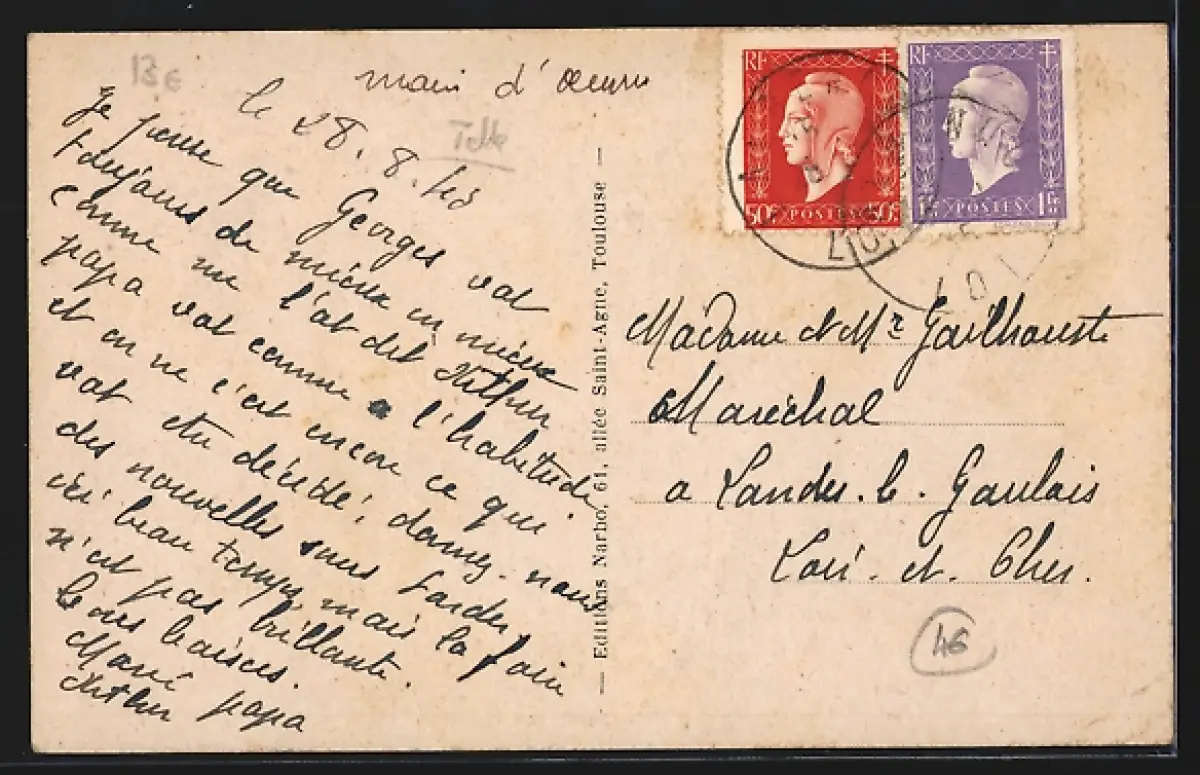 13€
main d'œuvre
le 28.8.45
Je pense que Georges vat
toujours de mieux en mieux
comme me l'at dit Arthur
papa vat comme a l'habitude
et on ne c'est encore ce qui
vat etu décidé; donnez-nous
des nouvelles sans tarder
ici beau temps, mais la foin
n'est pas brillante.
bons baisers.
Mani papa
Arthur
— Editions Narbo, 61, allée Saint-Agne, Toulouse —
RF
50c POSTES 50c
RF
1Fr POSTES 1Fr
LOT
Madame et Mr Gailhouste
Maréchal
a Landes. le. Gaulois
Loir. et. Cher.
46